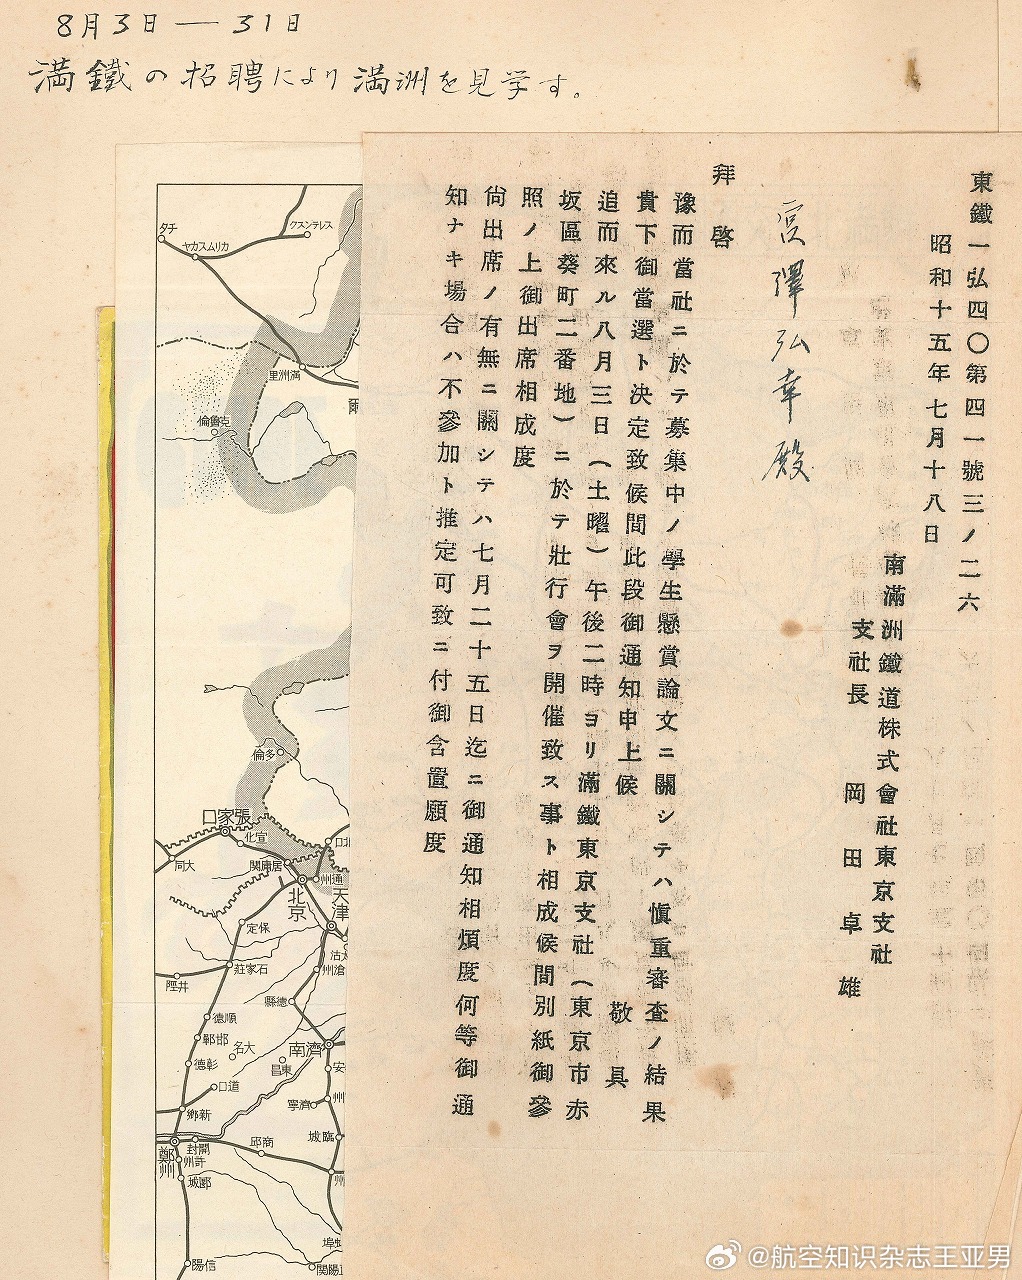 8月3日 — 31日
満鐵の招聘により満洲を見学す。
東鐵一弘四〇第四一號三ノ二六
昭和十五年七月十八日
南滿洲鐵道株式會社東京支社
支社長 岡田卓雄
宮澤弘幸殿
拜啓
豫而當社ニ於テ募集中ノ學生懸賞論文ニ關シテハ愼重審査ノ結果
貴下御當選ト決定致候間此段御通知申上候 敬具
追而來ル八月三日(土曜)午後二時ヨリ滿鐵東京支社(東京市赤
坂區葵町二番地)ニ於テ壯行會ヲ開催致ス事ト相成候間別紙御參
照ノ上御出席相成度
尙出席ノ有無ニ關シテハ七月二十五日迄ニ御通知相煩度何等御通
知ナキ場合ハ不參加ト推定可致ニ付御含置願度
チタ
スレテンスク
カリムスカヤ
滿洲里
克魯倫
多倫
張家口
宣化
大同
居庸關
通州
北京
天津
保定
滄州
石家莊
井陘
德縣
順德
邯鄲
大名
濟南
彰德
東昌
道口
濟寧
新鄉
臨城
鄭州
開封
商邱
許州
郾城
信陽
@航空知识杂志王亚男